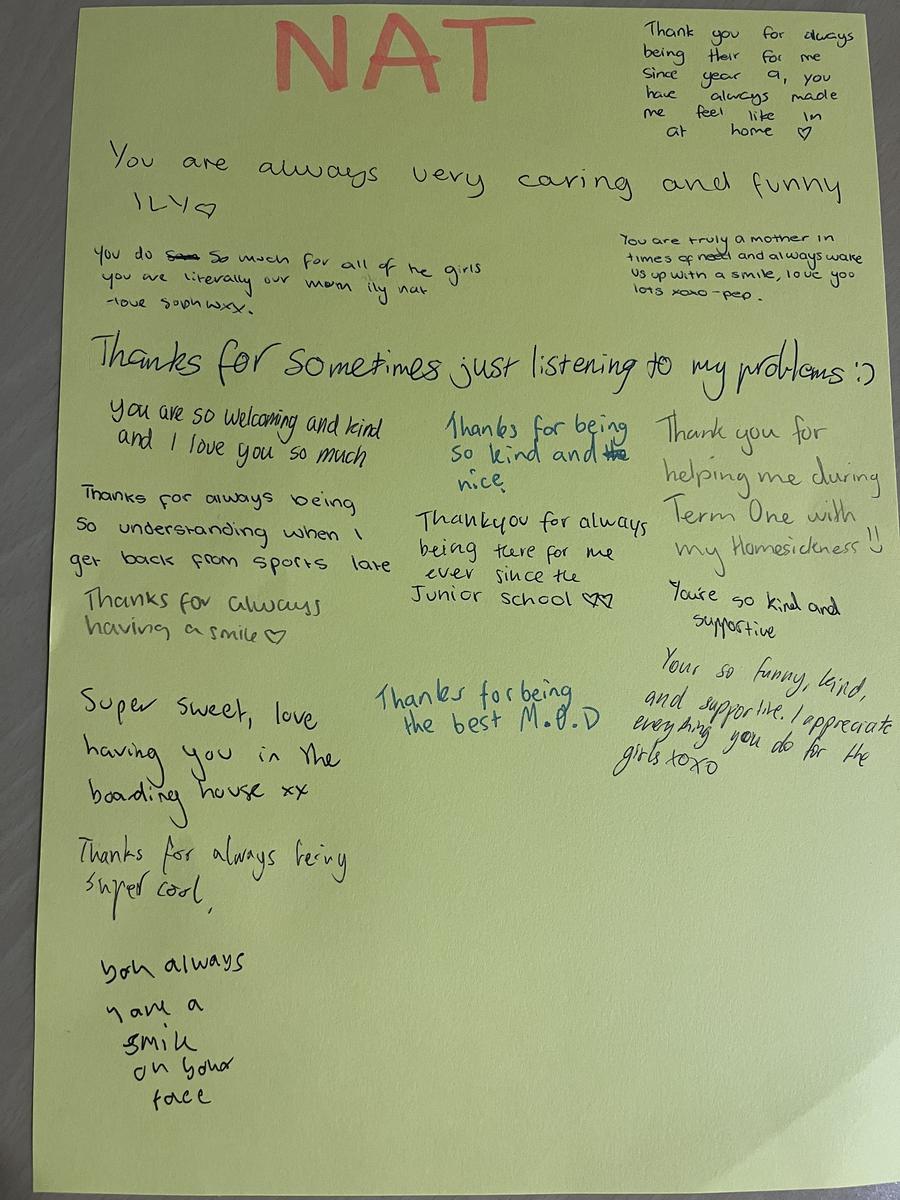 NAT
Thank you for always
being their for me
since year 9, you
have always made
me feel like In
at home ♡
You are always very caring and funny
ILY♡
You do so much for all of he girls
you are literally our mom ily nat
-love sophwxx.
You are truly a mother in
times of need and always wake
us up with a smile, love you
lots xoxo-pep.
Thanks for sometimes just listening to my problems :)
you are so welcoming and kind
and I love you so much
Thanks for being
so kind and
nice.
Thank you for
helping me during
Term One with
my Homesickness !!
Thanks for always being
so understanding when I
get back from sports late
Thankyou for always
being there for me
ever since the
Junior school ♡♡
You're so kind and
supportive
Thanks for always
having a smile ♡
Your so funny, kind,
and supportive. I appreciate
everything you do for the
girls xoxo
Super sweet, love
having you in the
boarding house xx
Thanks for being
the best M.O.D
Thanks for always being
super cool,
you always
have a
smile
on your
face